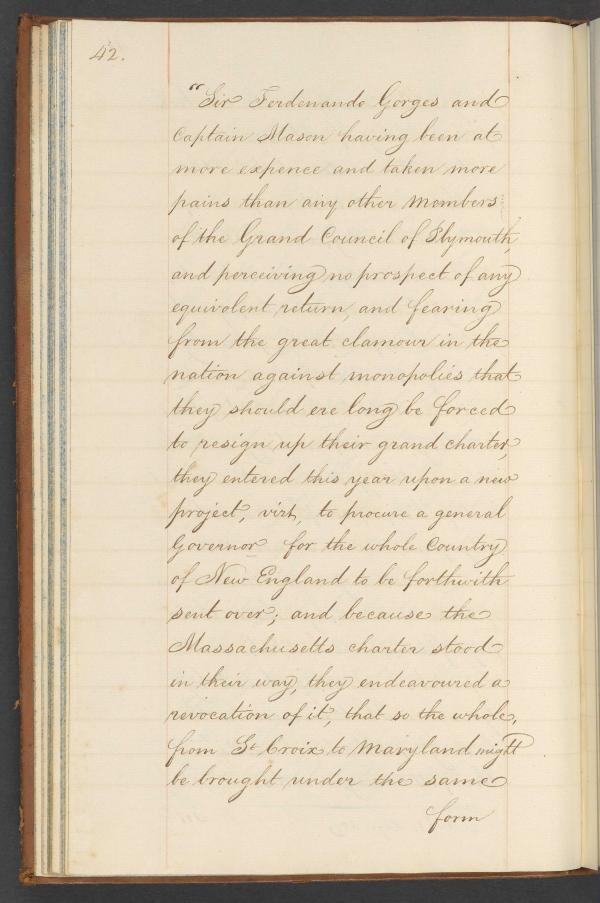 42.
"Sir Ferdenando Gorges and
Captain Mason having been at
more expence and taken more
pains than any other members
of the Grand Council of Plymouth
and perceiving no prospect of any
equivolent return, and fearing
from the great clamour in the
nation against monopolies that
they should ere long be forced
to resign up their grand charter,
they entered this year upon a new
project, virt, to procure a general
Governor for the whole Country
of New England to be forthwith
sent over; and because the
Massachusetts charter stood
in their way, they endeavoured a
revocation of it, that so the whole,
from St Croix to Maryland might
be brought under the same
form